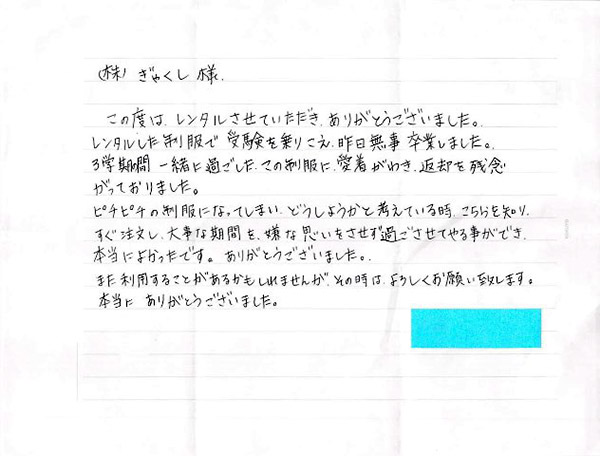 (株)ぎゃくし 様.
この度は、レンタルさせていただき、ありがとうございました。
レンタルした制服で 受験を乗りこえ、昨日無事 卒業しました。
3学期間 一緒に過ごした、この制服に、愛着がわき、返却を残念
がっておりました。
ピチピチの制服になってしまい、どうしようかと考えている時、こちらを知り、
すぐ注文し、大事な期間を、嫌な思いをさせず過ごさせてやる事ができ、
本当によかったです。 ありがとうございました。
また利用することがあるかもしれませんが、その時は、よろしくお願い致します。
本当に ありがとうございました。